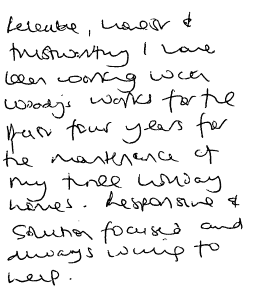 Reliable, honest &
trustworthy I have
been working with
Woodys works for the
past four years for
the maintenance of
my three holiday
homes. Responsive &
solution focused and
always willing to
help.